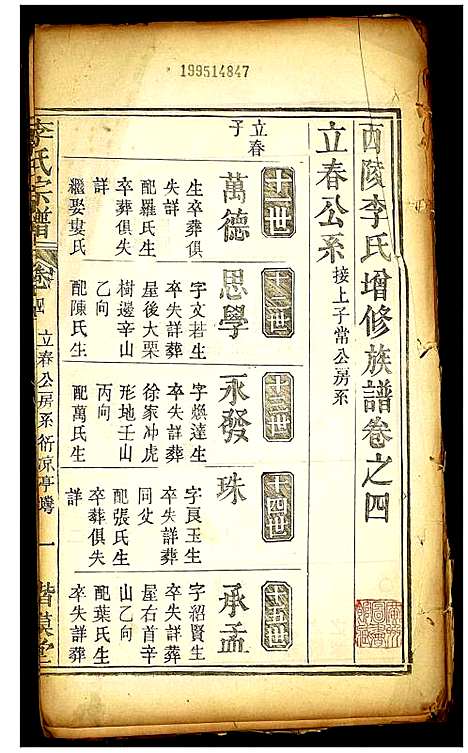 199514847
西陵李氏增修族譜卷之四
立春公系 接上子常公房系
十一世
立春子
萬德
生卒葬俱
失詳
配羅氏生
卒葬俱失
詳
繼娶婁氏
十二世
思學
字文若生
卒失詳葬
屋後大栗
樹邊辛山
乙向
配陳氏生
十三世
永發
字煥達生
卒失詳葬
徐家冲虎
形地壬山
丙向
配萬氏生
十四世
珠
字良玉生
卒失詳葬
同父
配張氏生
卒葬俱失
詳
十五世
承孟
字紹賢生
卒失詳葬
屋右首辛
山乙向
配葉氏生
卒失詳葬
李氏宗譜
卷四
立春公房系衍凉亭塆
一